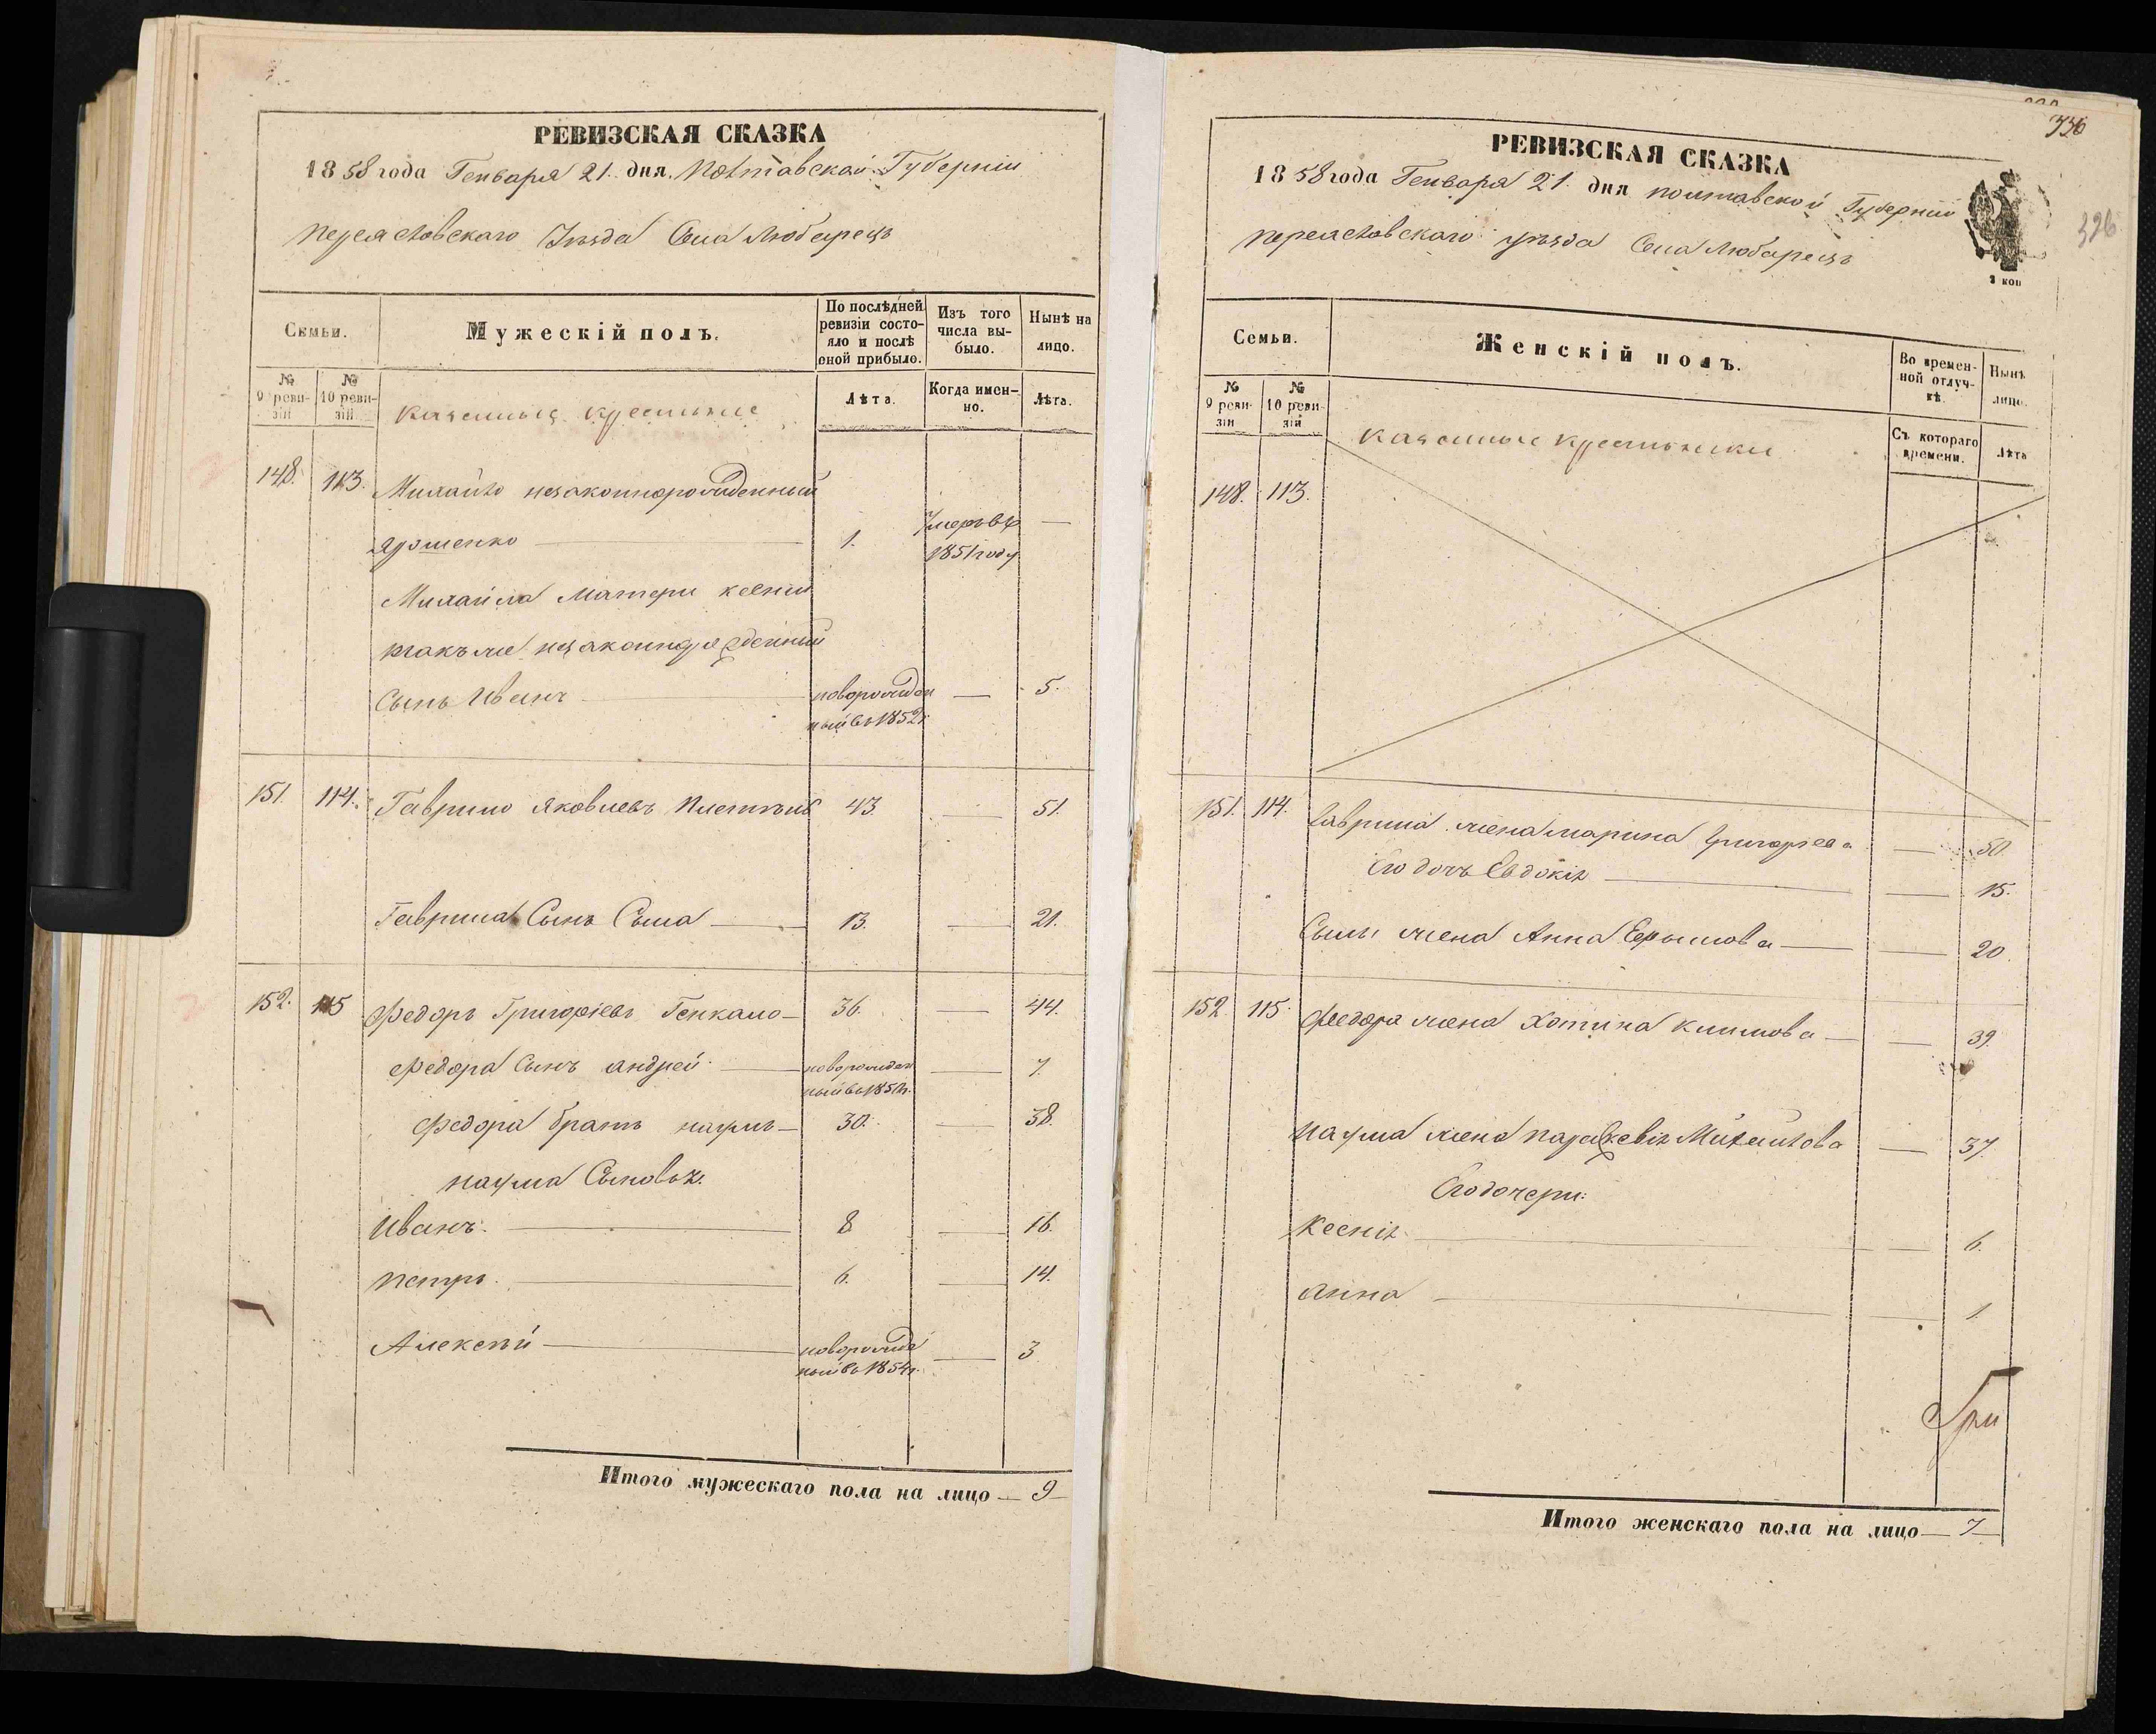 РЕВИЗСКАЯ СКАЗКА
1858 года Генваря 21. дня. Полтавской Губерніи
переяславскаго Уѣзда Села Любарецъ
Семьи.
Мужескій полъ.
По послѣдней ревизіи состояло и послѣ оной прибыло.
Изъ того числа выбыло.
Нынѣ на лицо.
№ 9 ревизіи
№ 10 ревизіи
казенныя крестьяне
Лѣта.
Когда именно.
Лѣта.
148. 113. Михайло незаконнорожденный
Ярошенко — 1. Умеръ въ 1851 году —
Михайла Матери ксеніи
такъ же незаконнорожденный
Сынъ Иванъ — новорожденный въ 1852 г. — 5.
151. 114. Гаврило Яковлевъ 43. — 51.
Гаврила Сынъ Сыла — 13. — 21.
152. 115 Федоръ Григоріевъ Генкало — 36. — 44.
Федора Сынъ андрей — новорожденный въ 1851 г. — 7.
Федора братъ наумъ — 30. — 38.
наума Сыновья.
Иванъ. — 8 — 16.
петръ. — 6. — 14.
Алексѣй — новорожденный въ 1854 г. — 3
Итого мужескаго пола на лицо — 9
336
326
РЕВИЗСКАЯ СКАЗКА
1858 года Генваря 21. дня полтавской Губерніи
переяславскаго уѣзда Села Любарецъ
коп
Семьи.
Женскій полъ.
Во временной отлучкѣ.
Нынѣ лицо.
№ 9 ревизіи
№ 10 ревизіи
казенные крестьянки
Съ котораго времени.
Лѣта
148. 113.
151. 114. Гаврила жена марина Григоріева — 50.
Его дочь Евдокія — 15.
Сылы жена Анна — 20.
152. 115. Федора жена Хотина климова — 39.
наума жена параскевія Михайлова — 37.
Его дочери:
Ксенія — 6.
анна — 1.
Итого женскаго пола на лицо — 7